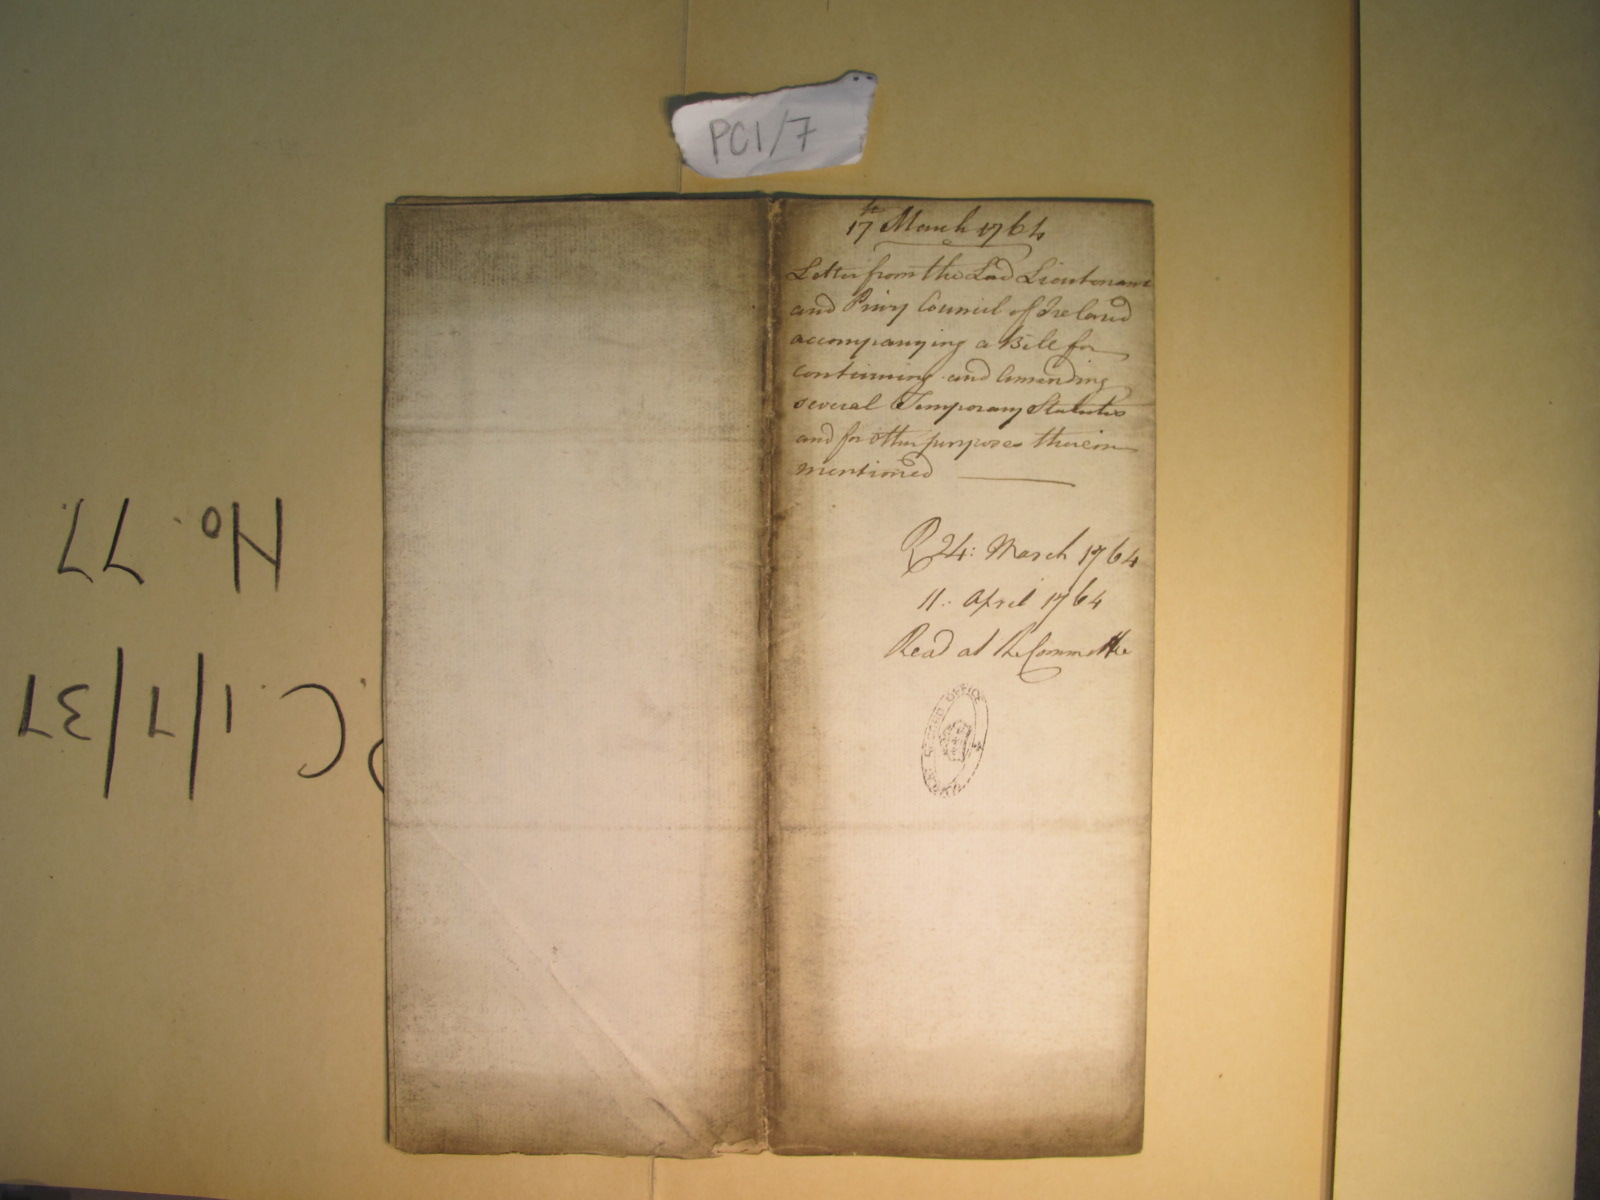 PC1/7
17th March 1764
Letter from the Lord Lieutenant
and Privy Council of Ireland
accompanying a Bill for
continuing and amending
several Temporary Statutes
and for other purposes therein
mentioned
R 24: March 1764
11: April 1764
Read at the Committee
RECORD OFFICE
No. 77
C 1/7/37